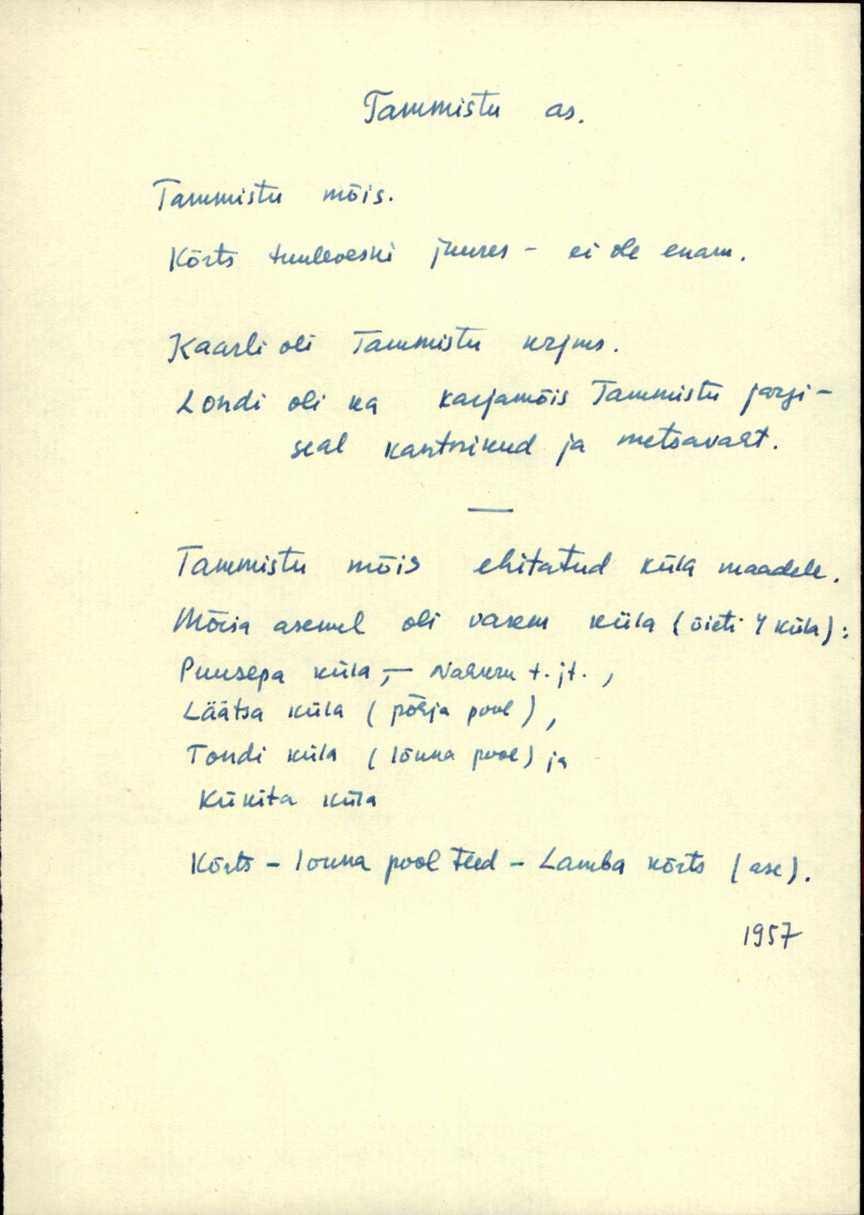 Tammistu as.
Tammistu mõis.
Kõrts tuuleveski juures - ei ole enam.
Kaarli oli Tammistu krjms.
Londi oli ka karjamõis Tammistu järgi -
seal kantnikud ja metsavaht.
Tammistu mõis ehitatud küla maadele.
Mõisa asemel oli varem küla (õieti 4 küla):
Puusepa küla, - t. jt.,
Läätsa küla (põhja pool),
Tondi küla (lõuna pool) ja
Kükita küla
Kõrts - lõuna pool teed - Lamba kõrts (ase).
1957